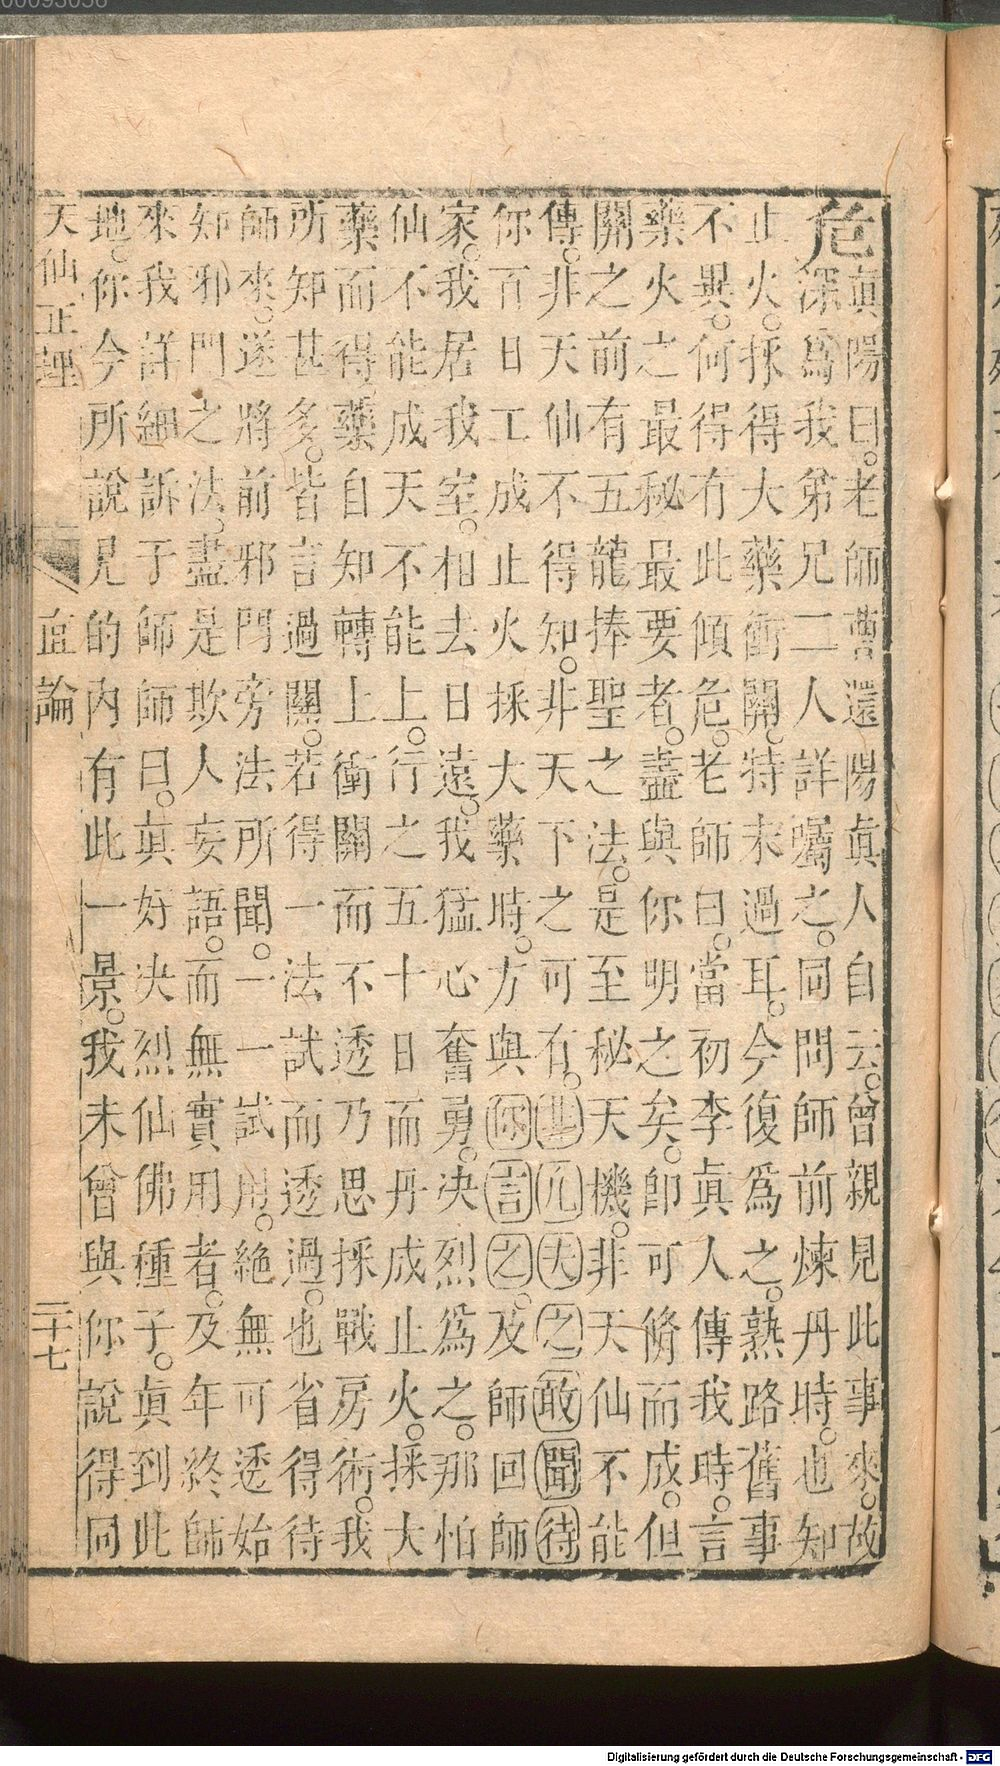 危
眞陽曰。老師曹還陽眞人自云。曾親見此事來。故
深爲我弟兄二人詳囑之。同問師前煉丹時。也知
止火。採得大藥衝關。特未過耳。今復爲之。熟路舊事
不異。何得有此傾危。老師曰。當初李眞人傳我時。言
藥火之最秘最要者。盡與你明之矣。卽可脩而成。但
關之前有五龍捧聖之法。是至秘天機。非天仙不能
傳。非天仙不得知。非天下之可有。非凡夫之敢聞待
你百日工成止火採大藥時。方與你言之。及師回師
家。我居我室。相去日遠。我猛心奮勇。决烈爲之。那怕
仙不能成天不能上。行之五十日而丹成止火。採大
藥而得藥自知轉上衝關而不透乃思採戰房術。我
所知甚多。皆言過關。若得一法試而透過。也省得待
師來。遂將前邪門旁法所聞。一一試用。絕無可透始
知邪門之法。盡是欺人妄語。而無實用者。及年終師
來我詳細訴于師師曰。眞好决烈仙佛種子。眞到此
地。你今所說見的內有此一景。我未曾與你說得同
天仙正理
直論
二十七
00093056
Digitalisierung gefördert durch die Deutsche Forschungsgemeinschaft - DFG